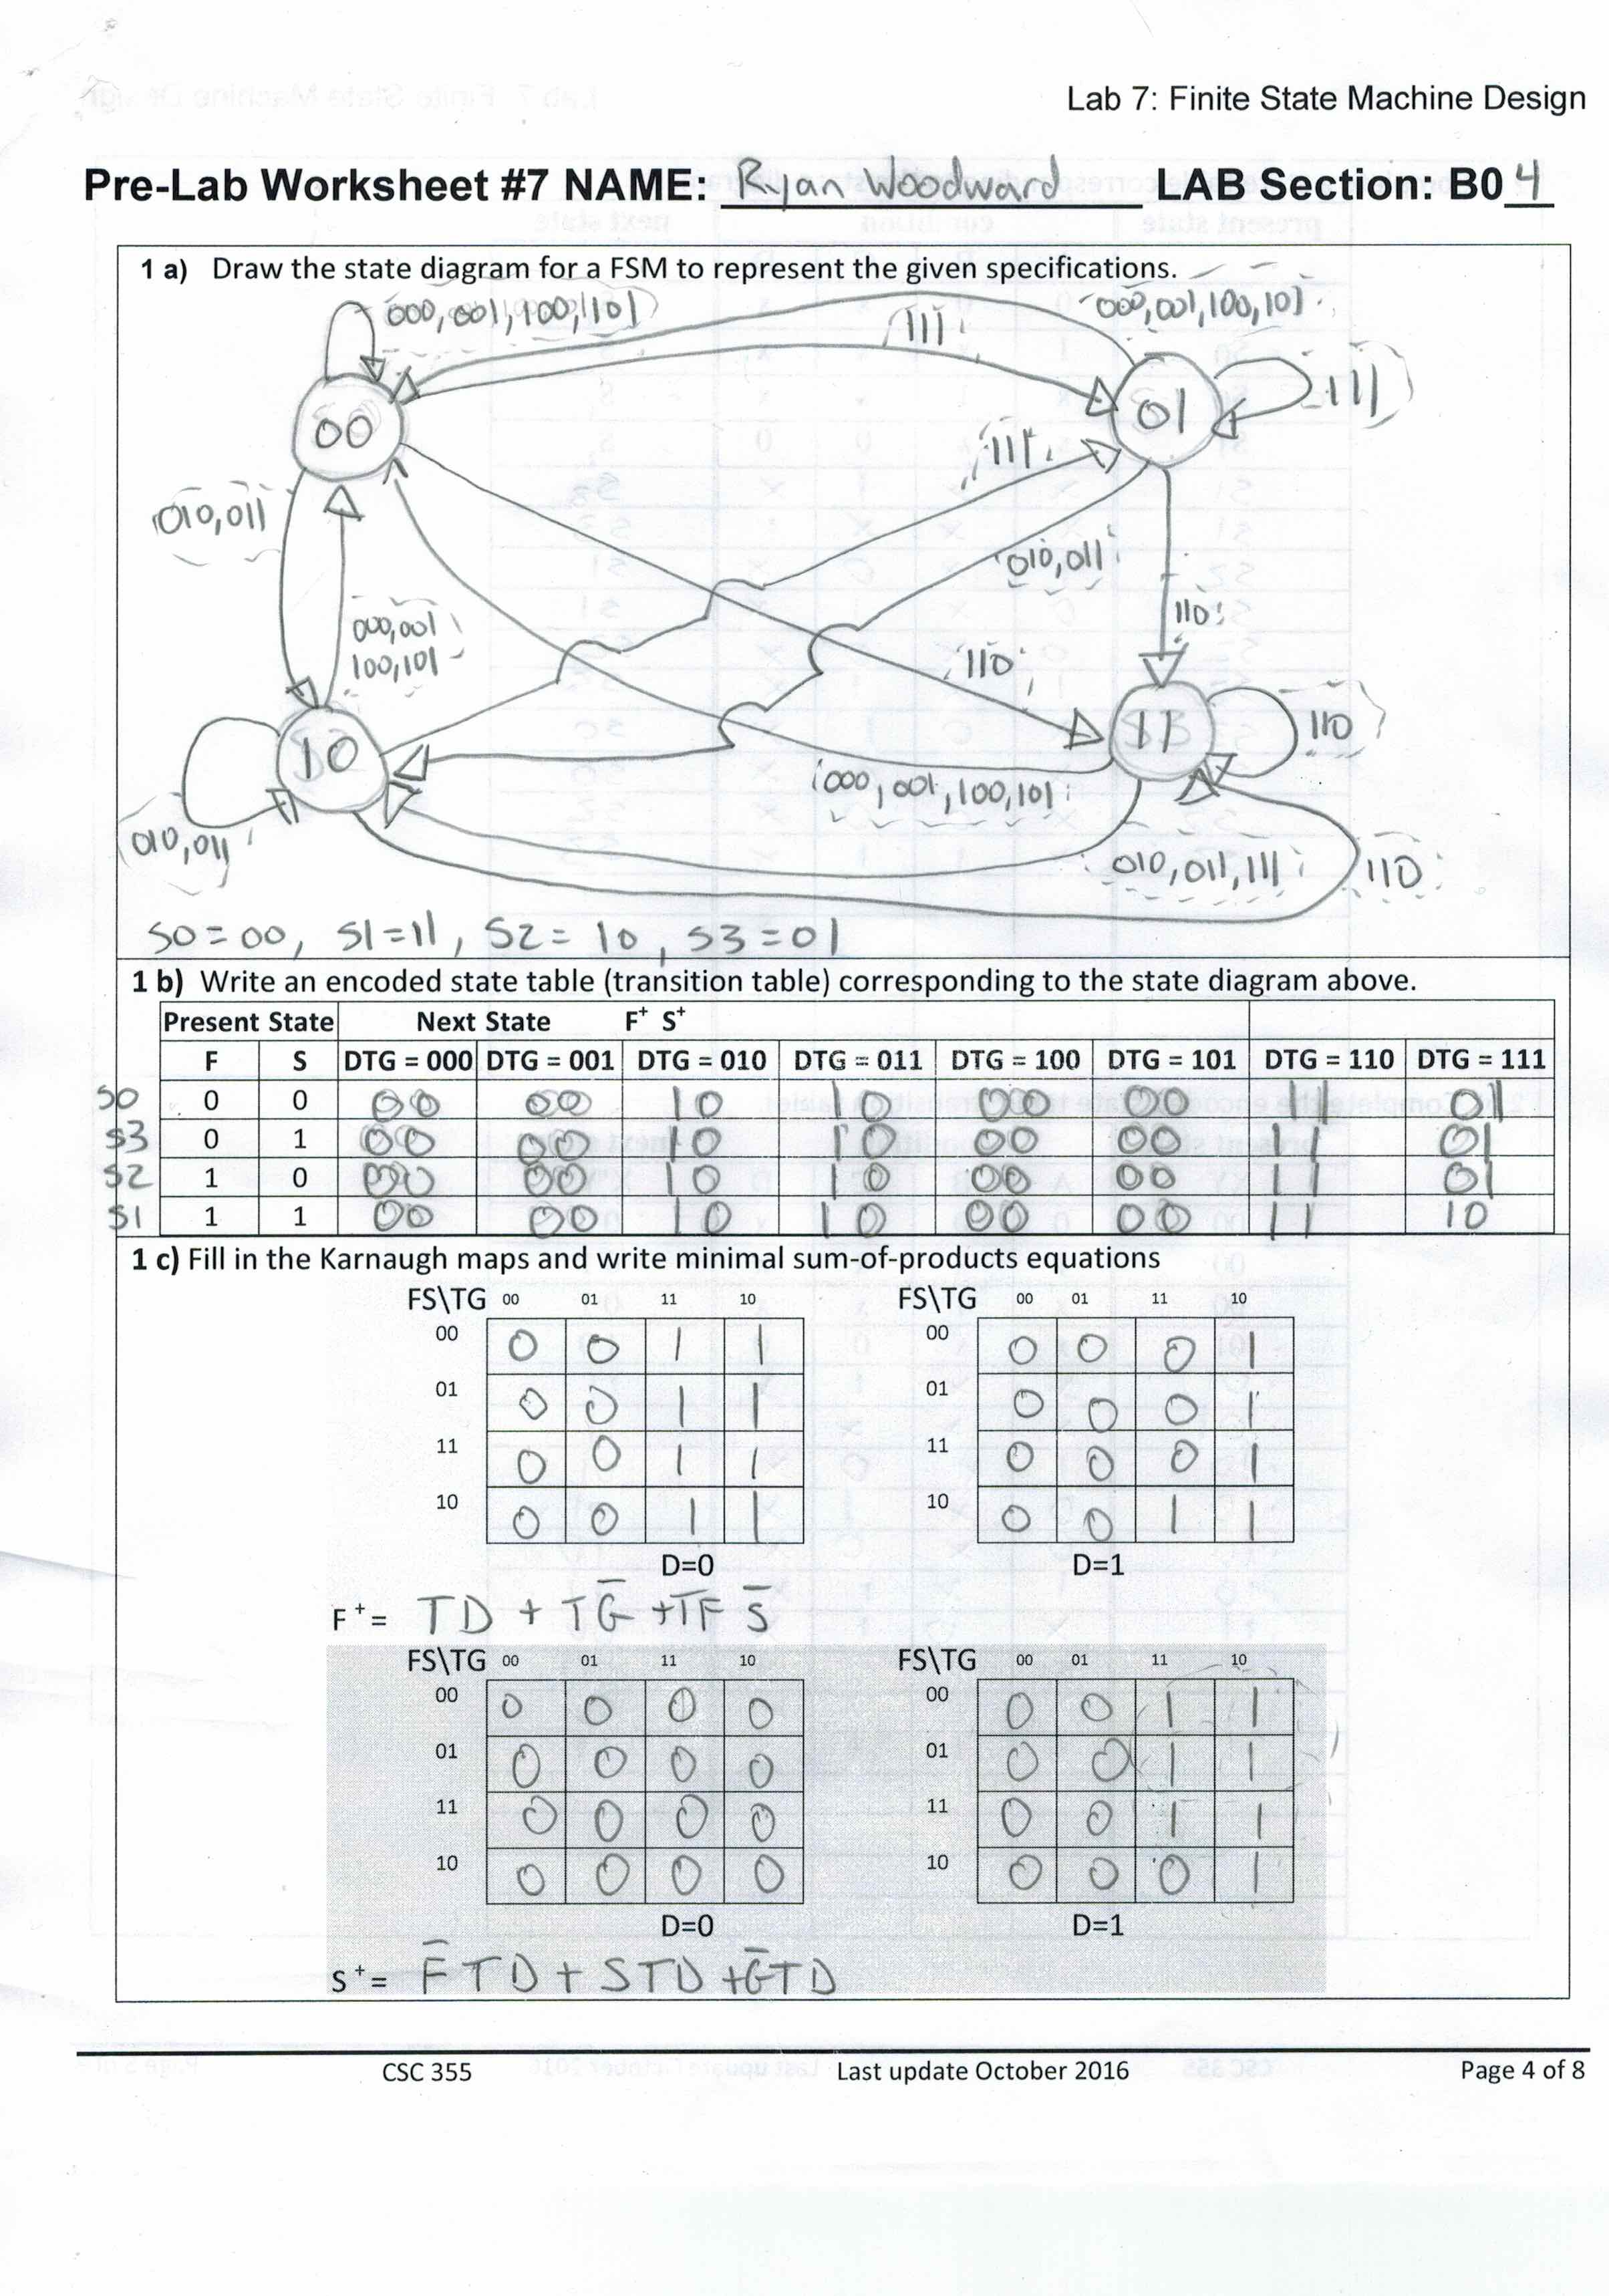 Lab 7: Finite State Machine Design
Pre-Lab Worksheet #7 NAME: Ryan Woodward LAB Section: B04
1 a) Draw the state diagram for a FSM to represent the given specifications.
000,001,100,101
000,001,100,101
111
00
01
111
111
010,011
010,011
000,001
100,101
110
110
10
11
110
000,001,100,101
010,011
010,011,111
110
S0=00, S1=11, S2=10, S3=01
1 b) Write an encoded state table (transition table) corresponding to the state diagram above.
Present State Next State F⁺ S⁺
F S DTG = 000 DTG = 001 DTG = 010 DTG = 011 DTG = 100 DTG = 101 DTG = 110 DTG = 111
S0 0 0 00 00 10 10 00 00 11 01
S3 0 1 00 00 10 10 00 00 11 01
S2 1 0 00 00 10 10 00 00 11 01
S1 1 1 00 00 10 10 00 00 11 10
1 c) Fill in the Karnaugh maps and write minimal sum-of-products equations
FS\TG 00 01 11 10 FS\TG 00 01 11 10
00 0 0 1 1 00 0 0 0 1
01 0 0 1 1 01 0 0 0 1
11 0 0 1 1 11 0 0 0 1
10 0 0 1 1 10 0 0 1 1
D=0 D=1
F⁺= TD + TG̅ + TF S̅
FS\TG 00 01 11 10 FS\TG 00 01 11 10
00 0 0 0 0 00 0 0 1 1
01 0 0 0 0 01 0 0 1 1
11 0 0 0 0 11 0 0 1 1
10 0 0 0 0 10 0 0 0 1
D=0 D=1
S⁺= F̅TD + STD + G̅TD
CSC 355 Last update October 2016 Page 4 of 8